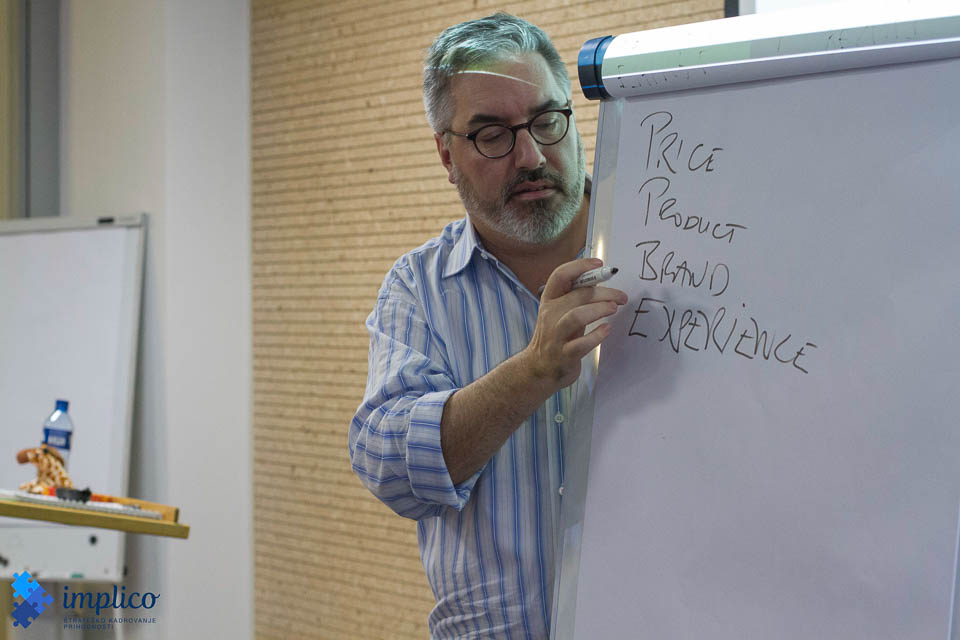 PRICE
PRODUCT
BRAND
EXPERIENCE
implico
STRATEŠKO KADROVANJE
PRIHODNOSTI